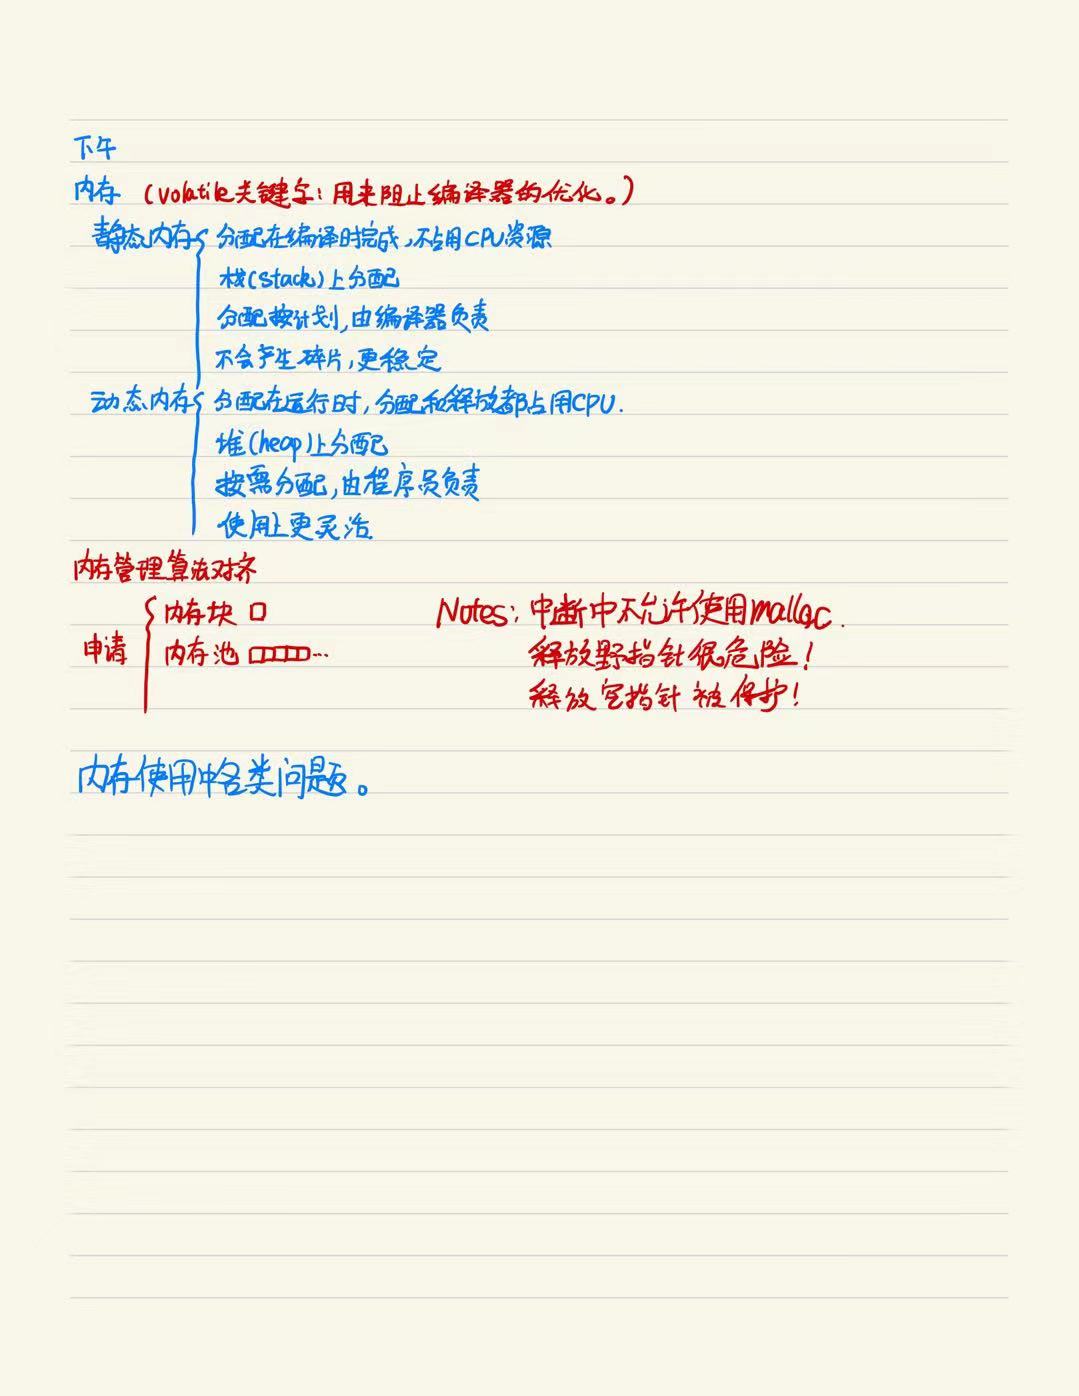 下午
内存 (volatile关键字:用来阻止编译器的优化。)
静态内存 分配在编译时完成,不占用CPU资源
栈(stack)上分配
分配按计划,由编译器负责
不会产生碎片,更稳定
动态内存 分配在运行时,分配和释放都占用CPU.
堆(heap)上分配
按需分配,由程序员负责
使用上更灵活.
内存管理算法对齐
内存块 Notes:中断中不允许使用malloc.
申请 内存池 ... 释放野指针很危险!
释放空指针被保护!
内存使用中各类问题。